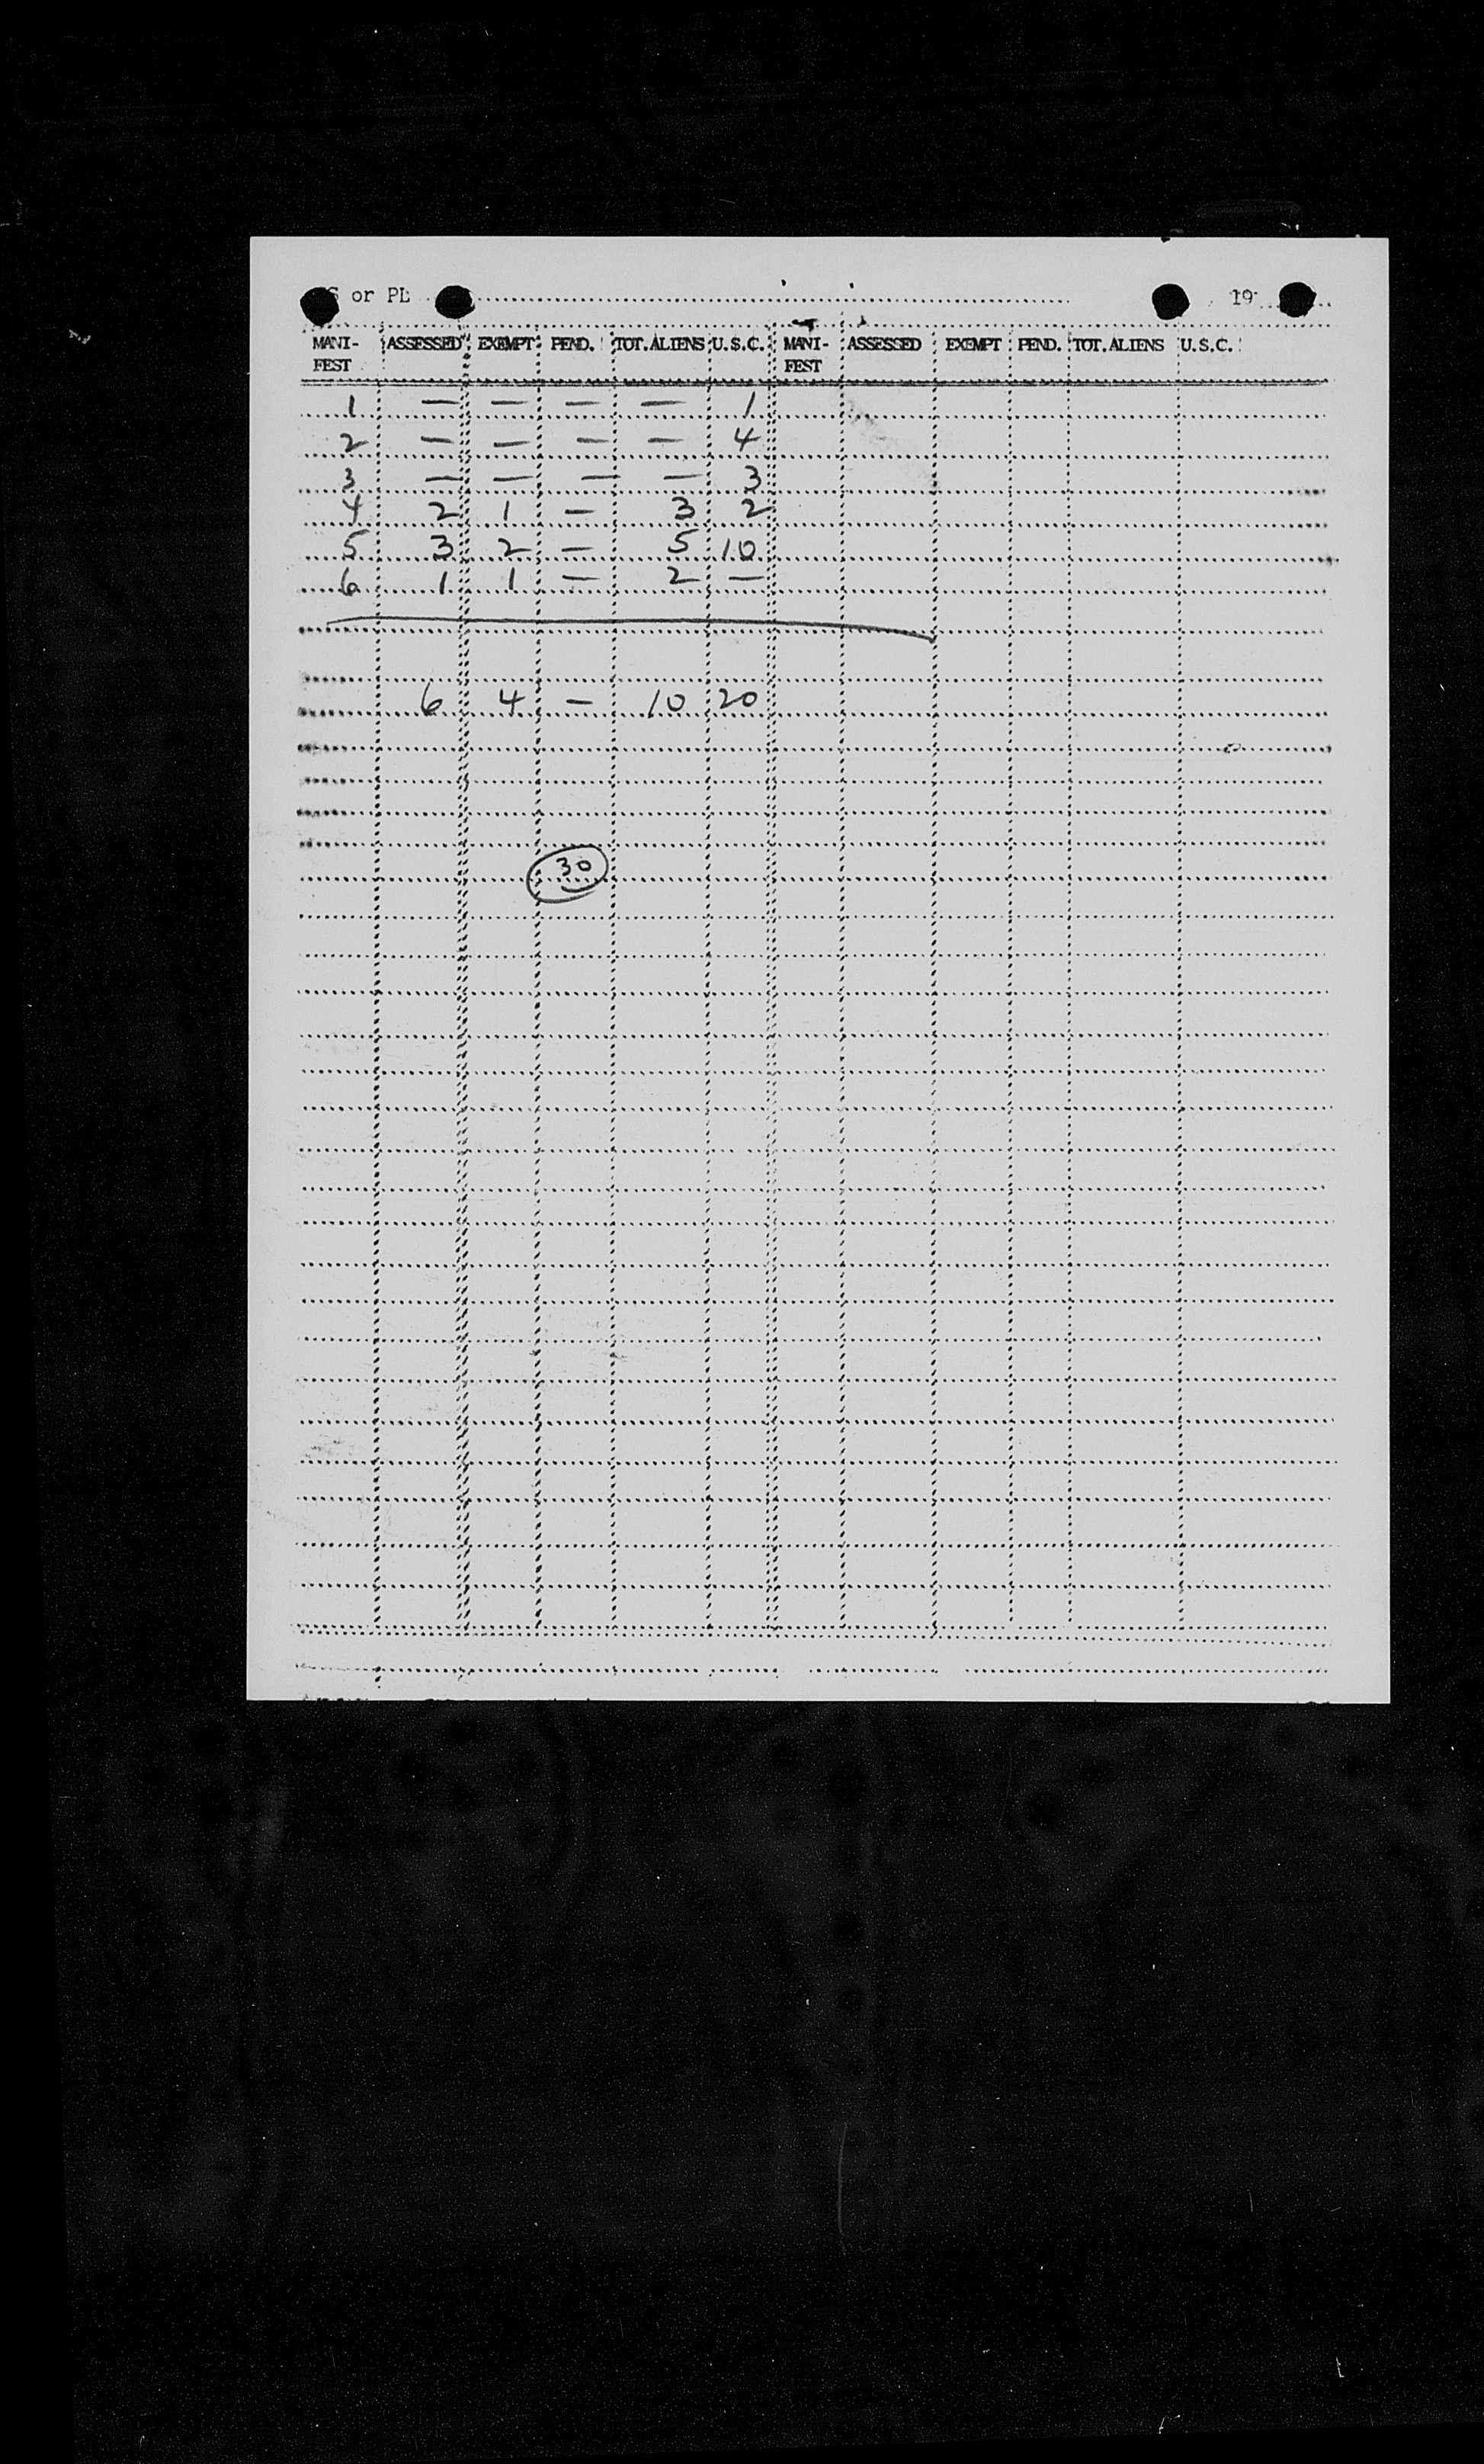 S or PL 19
MANI- ASSESSED EXEMPT PEND. TOT. ALIENS U.S.C. MANI- ASSESSED EXEMPT PEND. TOT. ALIENS U.S.C.
FEST FEST
1 — — — — 1
2 — — — — 4
3 — — — — 3
4 2 1 — 3 2
5 3 2 — 5 10
6 1 1 — 2 —
6 4 — 10 20
30